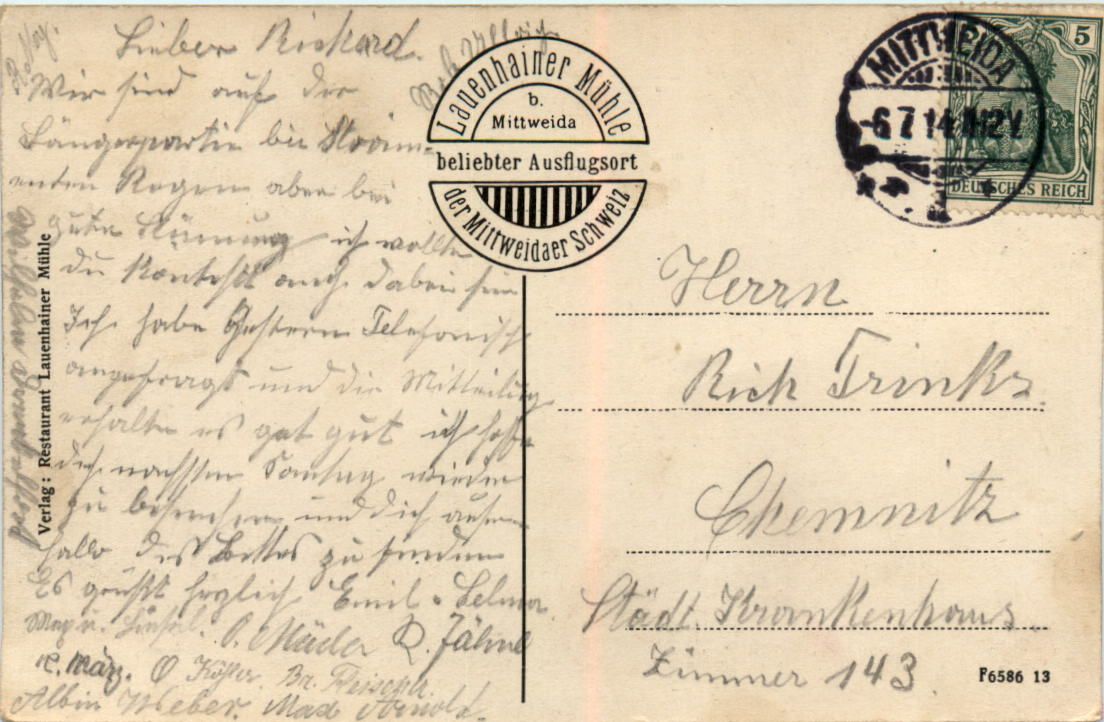 Lieber Richard
Wir sind auf der
Sängerpartie bei
Regen aber bei
guter Stimmung ich wollte
du könntest auch dabei sein
Ich habe Gestern Telefonisch
angefragt und die Mitteilung
erhalten es gat gut ich hoffe
dich nächsten Sontag wieder
zu besuchen und dich außer-
halb des Bettes zu finden
Es grüßt herzlich Emil u Selma
Max u.
O. Mäder R. Jähne
März. O Köhler. Br.
Albin Weber. Max Arnold.
Verlag: Restaurant Lauenhainer Mühle
Lauenhainer Mühle
b.
Mittweida
beliebter Ausflugsort
der Mittweidaer Schweiz
MITTWEIDA
-6 7 14
5
DEUTSCHES REICH
Herrn
Rich Trinks.
Chemnitz
Städt Krankenhaus.
Zimmer 143.
F6586 13